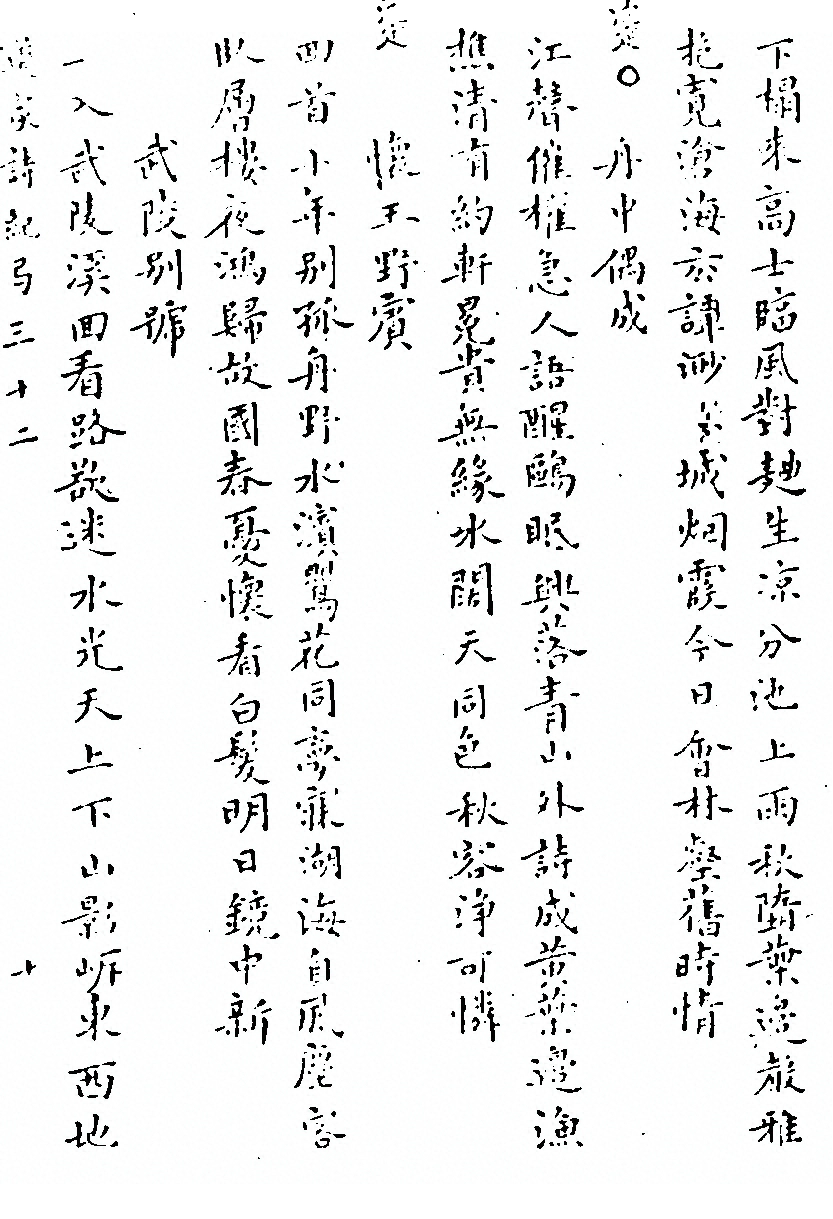 下榻來高士臨風對麯生凉分池上雨秋墮葉邊聲雅
抱寬滄海玄譚渺城烟霞今日會林壑舊時情
舟中偶成
江聲催櫂急人語醒鷗眠興落青山外詩成黃葉邊漁
樵清有約軒冕貴無緣水闊天同色秋容淨可憐
懷王野賓
回首十年別孤舟野水濱鶯花同夢寐湖海自風塵客
臥層樓夜鴻歸故國春憂懷看白髮明日鏡中新
武陵別號
一入武陵溪回看路欲迷水光天上下山影岸東西地
詩記弓三十二
十